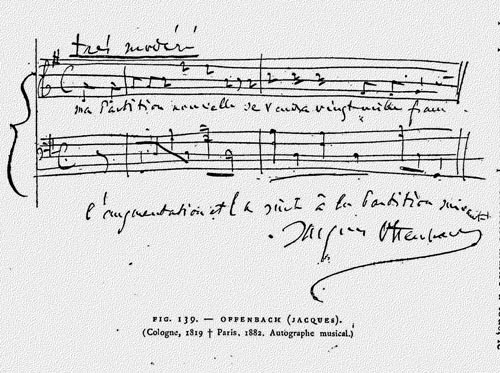 très modéré
ma Partition nouvelle se vendra vingt mille francs
l'augmentation et la suite à la Partition suivante
Jacques Offenbach
FIG. 139. — OFFENBACH (JACQUES).
(Cologne, 1819 † Paris, 1882. Autographe musical.)